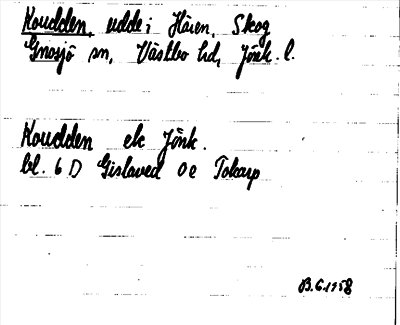 Koudden, udde i Hären, Skog
Gnosjö sn, Västbo hd, Jönk. l.
Koudden ek Jönk.
bl. 6 D Gislaved 0e Tokarp
B.G. 1958